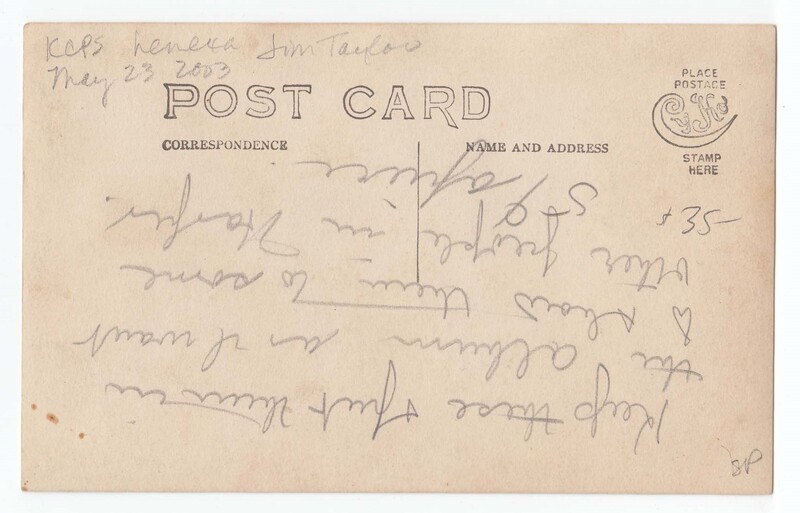 KCPS Lenexa Jim Taylor
May 23 2003
POST CARD
CORRESPONDENCE
NAME AND ADDRESS
PLACE
POSTAGE
CYKO
STAMP
HERE
35-
Keep these & put them in
the album as I want
to show them to some
other people in Harper.
SP